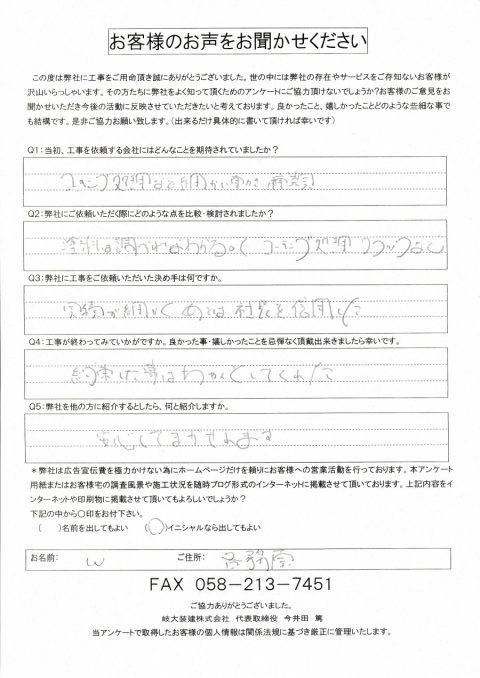 お客様のお声をお聞かせください
この度は弊社に工事をご用命頂き誠にありがとうございました。世の中には弊社の存在やサービスをご存知ないお客様が
沢山いらっしゃいます。その方たちに弊社をよく知って頂くためのアンケートにご協力頂けないでしょうか?お客様のご意見をお
聞かせいただき今後の活動に反映させていただきたいと考えております。良かったこと、嬉しかったことどのような些細な事で
も結構です。是非ご協力お願い致します。(出来るだけ具体的に書いて頂ければ幸いです)
Q1:当初、工事を依頼する会社にはどんなことを期待されていましたか?
コーキング処理など細かい
Q2:弊社にご依頼いただく際にどのような点を比較・検討されましたか?
塗料は調べればわかるので コーキング処理 クラックなど
Q3:弊社に工事をご依頼いただいた決め手は何ですか。
見積が細かく あとは社長を信用した
Q4:工事が終わってみていかがですか。良かった事・嬉しかったことを忌憚なく頂戴出来きましたら幸いです。
約束した事はちゃんとしてくれた
Q5:弊社を他の方に紹介するとしたら、何と紹介しますか。
安心してまかせれます
*弊社は広告宣伝費を極力かけない為にホームページだけを頼りにお客様への営業活動を行っております。本アンケート
用紙またはお客様宅の調査風景や施工状況を随時ブログ形式のインターネットに掲載させて頂いております。上記内容をイ
ンターネットや印刷物に掲載させて頂いてもよろしいでしょうか?
下記の中から〇印をお付下さい。
( )名前を出してもよい (〇)イニシャルなら出してもよい
お名前: W ご住所: 各務原
FAX 058-213-7451
ご協力ありがとうございました。
岐大装建株式会社 代表取締役 今井田 篤
当アンケートで取得したお客様の個人情報は関係法規に基づき厳正に管理いたします。